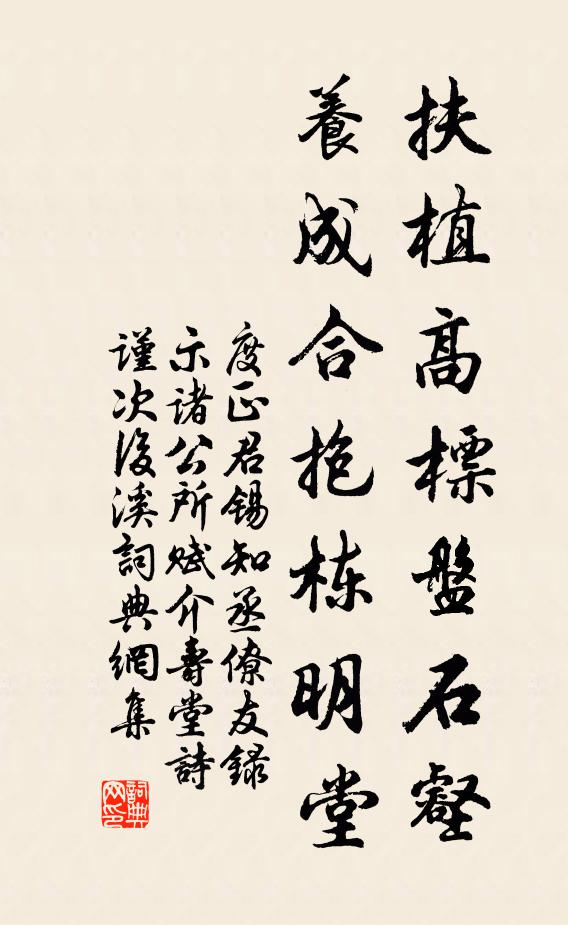 扶植高標盤石壑
養成合抱栋明堂
度正君錫知丞僚友録
示諸公所赋介壽堂詩
謹次後溪詞典網集
詞典网印